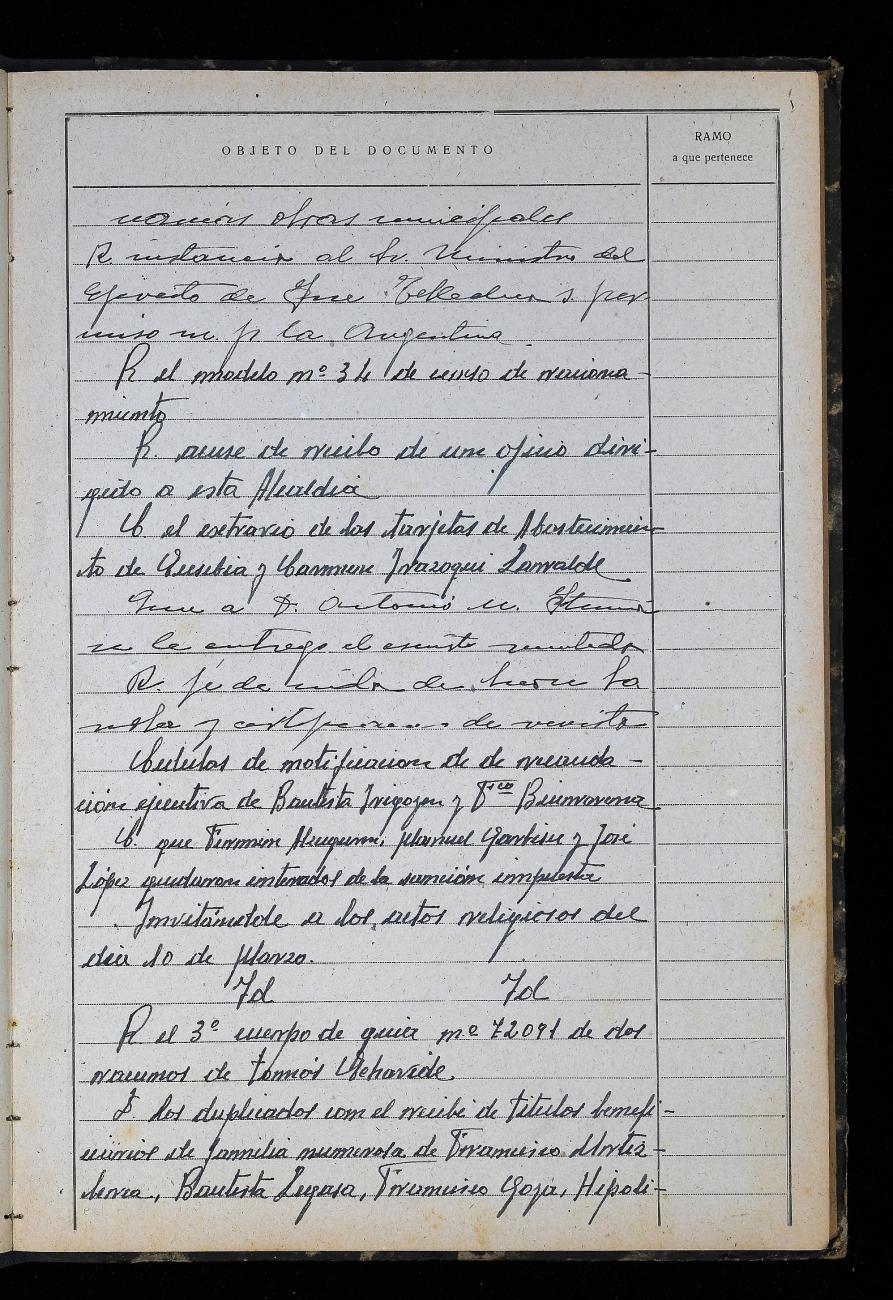 OBJETO DEL DOCUMENTO
RAMO
a que pertenece
varias obras municipales
R. instancia al Sr. Ministro del
Ejercito de Jose Tellechea s. per
miso m. p la Argentina
R el modelo nº 34 de censo de raciona-
miento
R. acuse de recibo de un oficio diri-
gido a esta Alcaldia
C. el extravio de las tarjetas de Abastecimien-
to de Eusebia y Carmen Irazoqui Larralde
Que a D. Antonio M.
se le entrego el escrito remitido
R. fé de vida de
y de revista
Cedulas de notificacion de de recauda-
ción ejecutiva de Bautista Irigoyen y Fco
C. que Fermin Manuel y José
López quedaron enterados de la sanción impuesta
Invitándole a los actos religiosos del
dia 10 de Marzo.
Id Id
R el 3º cuerpo de guia nº 72091 de dos
vacunos de Tomás Echavide
los duplicados con el recibí de titulos benefi-
ciarios de familia numerosa de Francisco
Bautista Legasa, Francisco Goya, Hipoli-